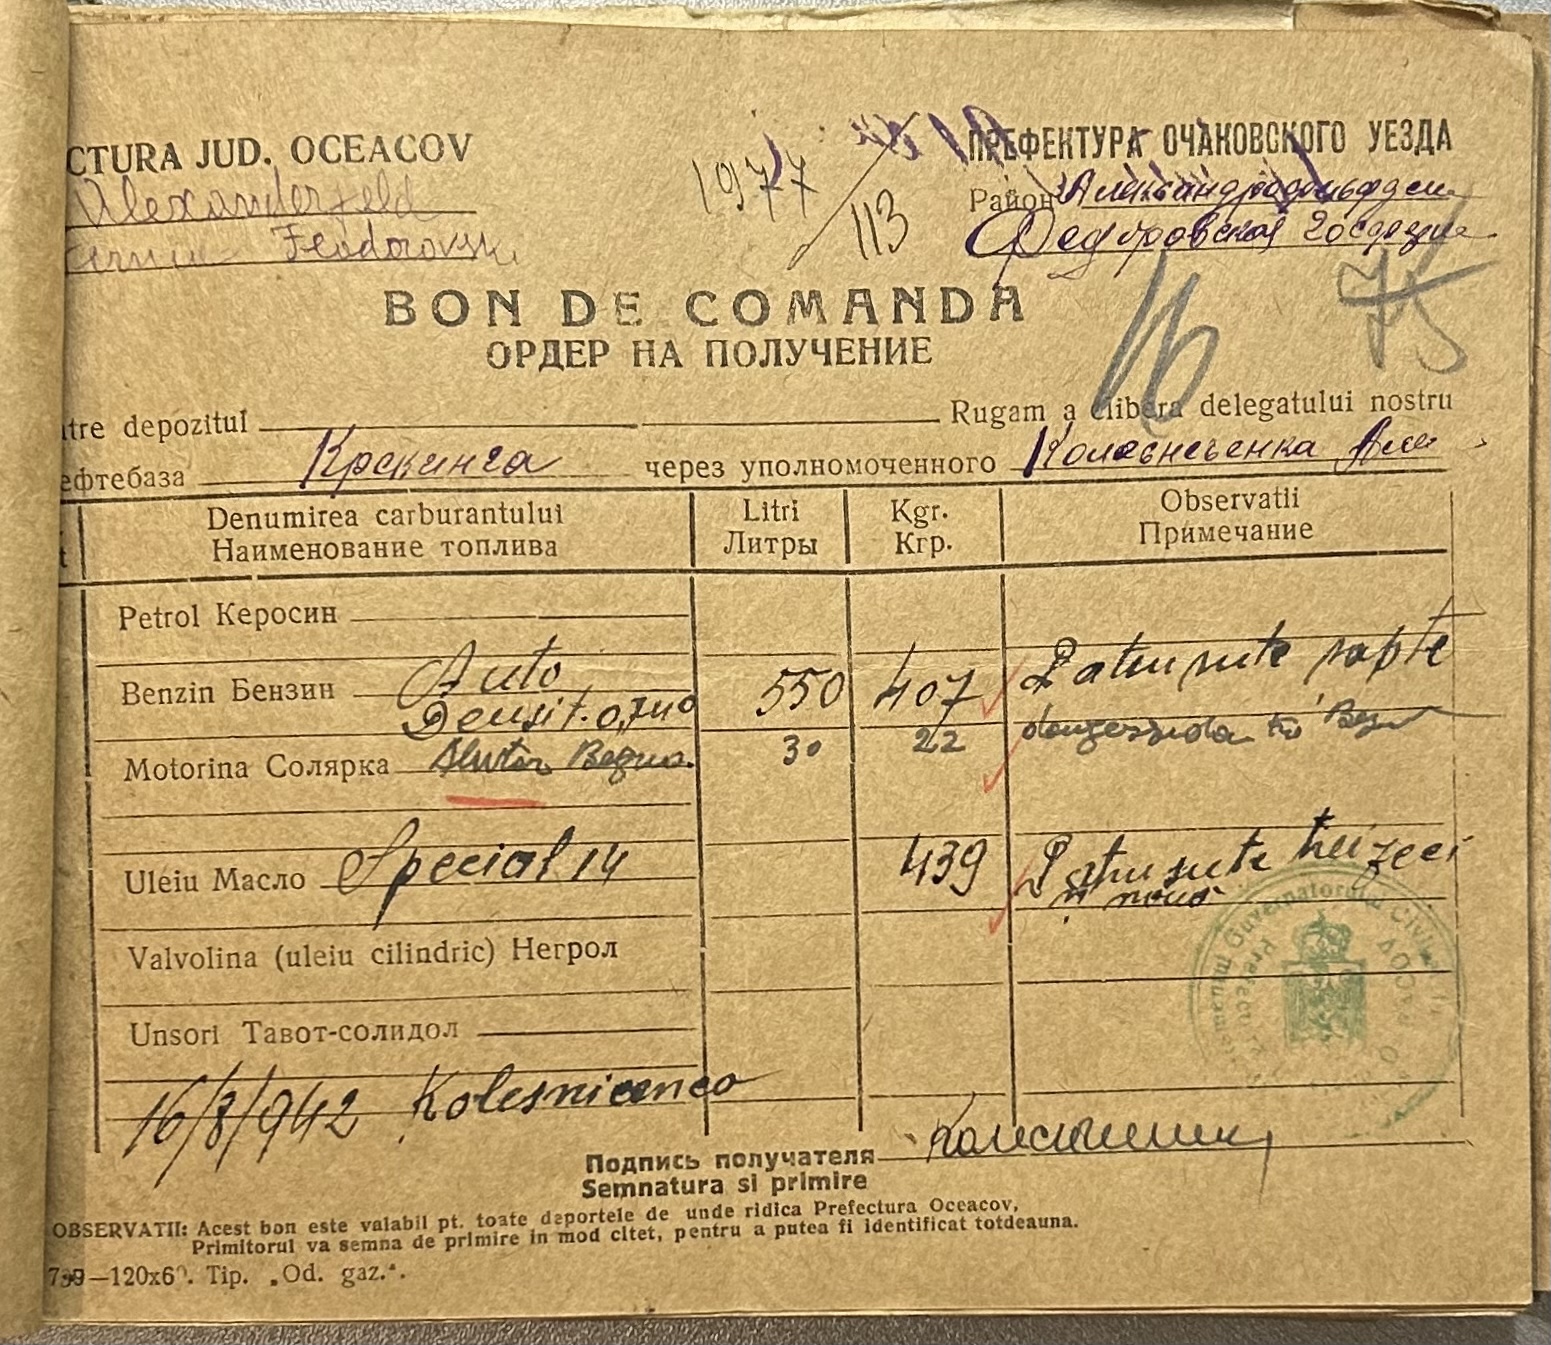 CTURA JUD. OCEACOV
ПРЕФЕКТУРА ОЧАКОВСКОГО УЕЗДА
Alexanderfeld
1977/113
Район Александрфельфден
Feodorovsk
Федоровской
16
75
BON DE COMANDA
ОРДЕР НА ПОЛУЧЕНИЕ
tre depozitul Rugam a elibera delegatului nostru
ефтебаза Крекинга через уполномоченного
Denumirea carburantului Litri Kgr. Observatii
Наименование топлива Литры Кгр. Примечание
Petrol Керосин
Benzin Бензин Auto 550 407 Patru sute sapte
Densit. 0,740
Motorina Солярка 30 22
Uleiu Масло Special 14 439 Patru sute treizeci
si noua
Valvolina (uleiu cilindric) Негрол
Unsori Тавот-солидол
16/8/942 Kolesnicenco
Подпись получателя
Semnatura si primire
OBSERVATII: Acest bon este valabil pt. toate deportele de unde ridica Prefectura Oceacov,
Primitorul va semna de primire in mod citet, pentru a putea fi identificat totdeauna.
—120x6 . Tip. „Od. gaz.“.
Guvernatorului Civil